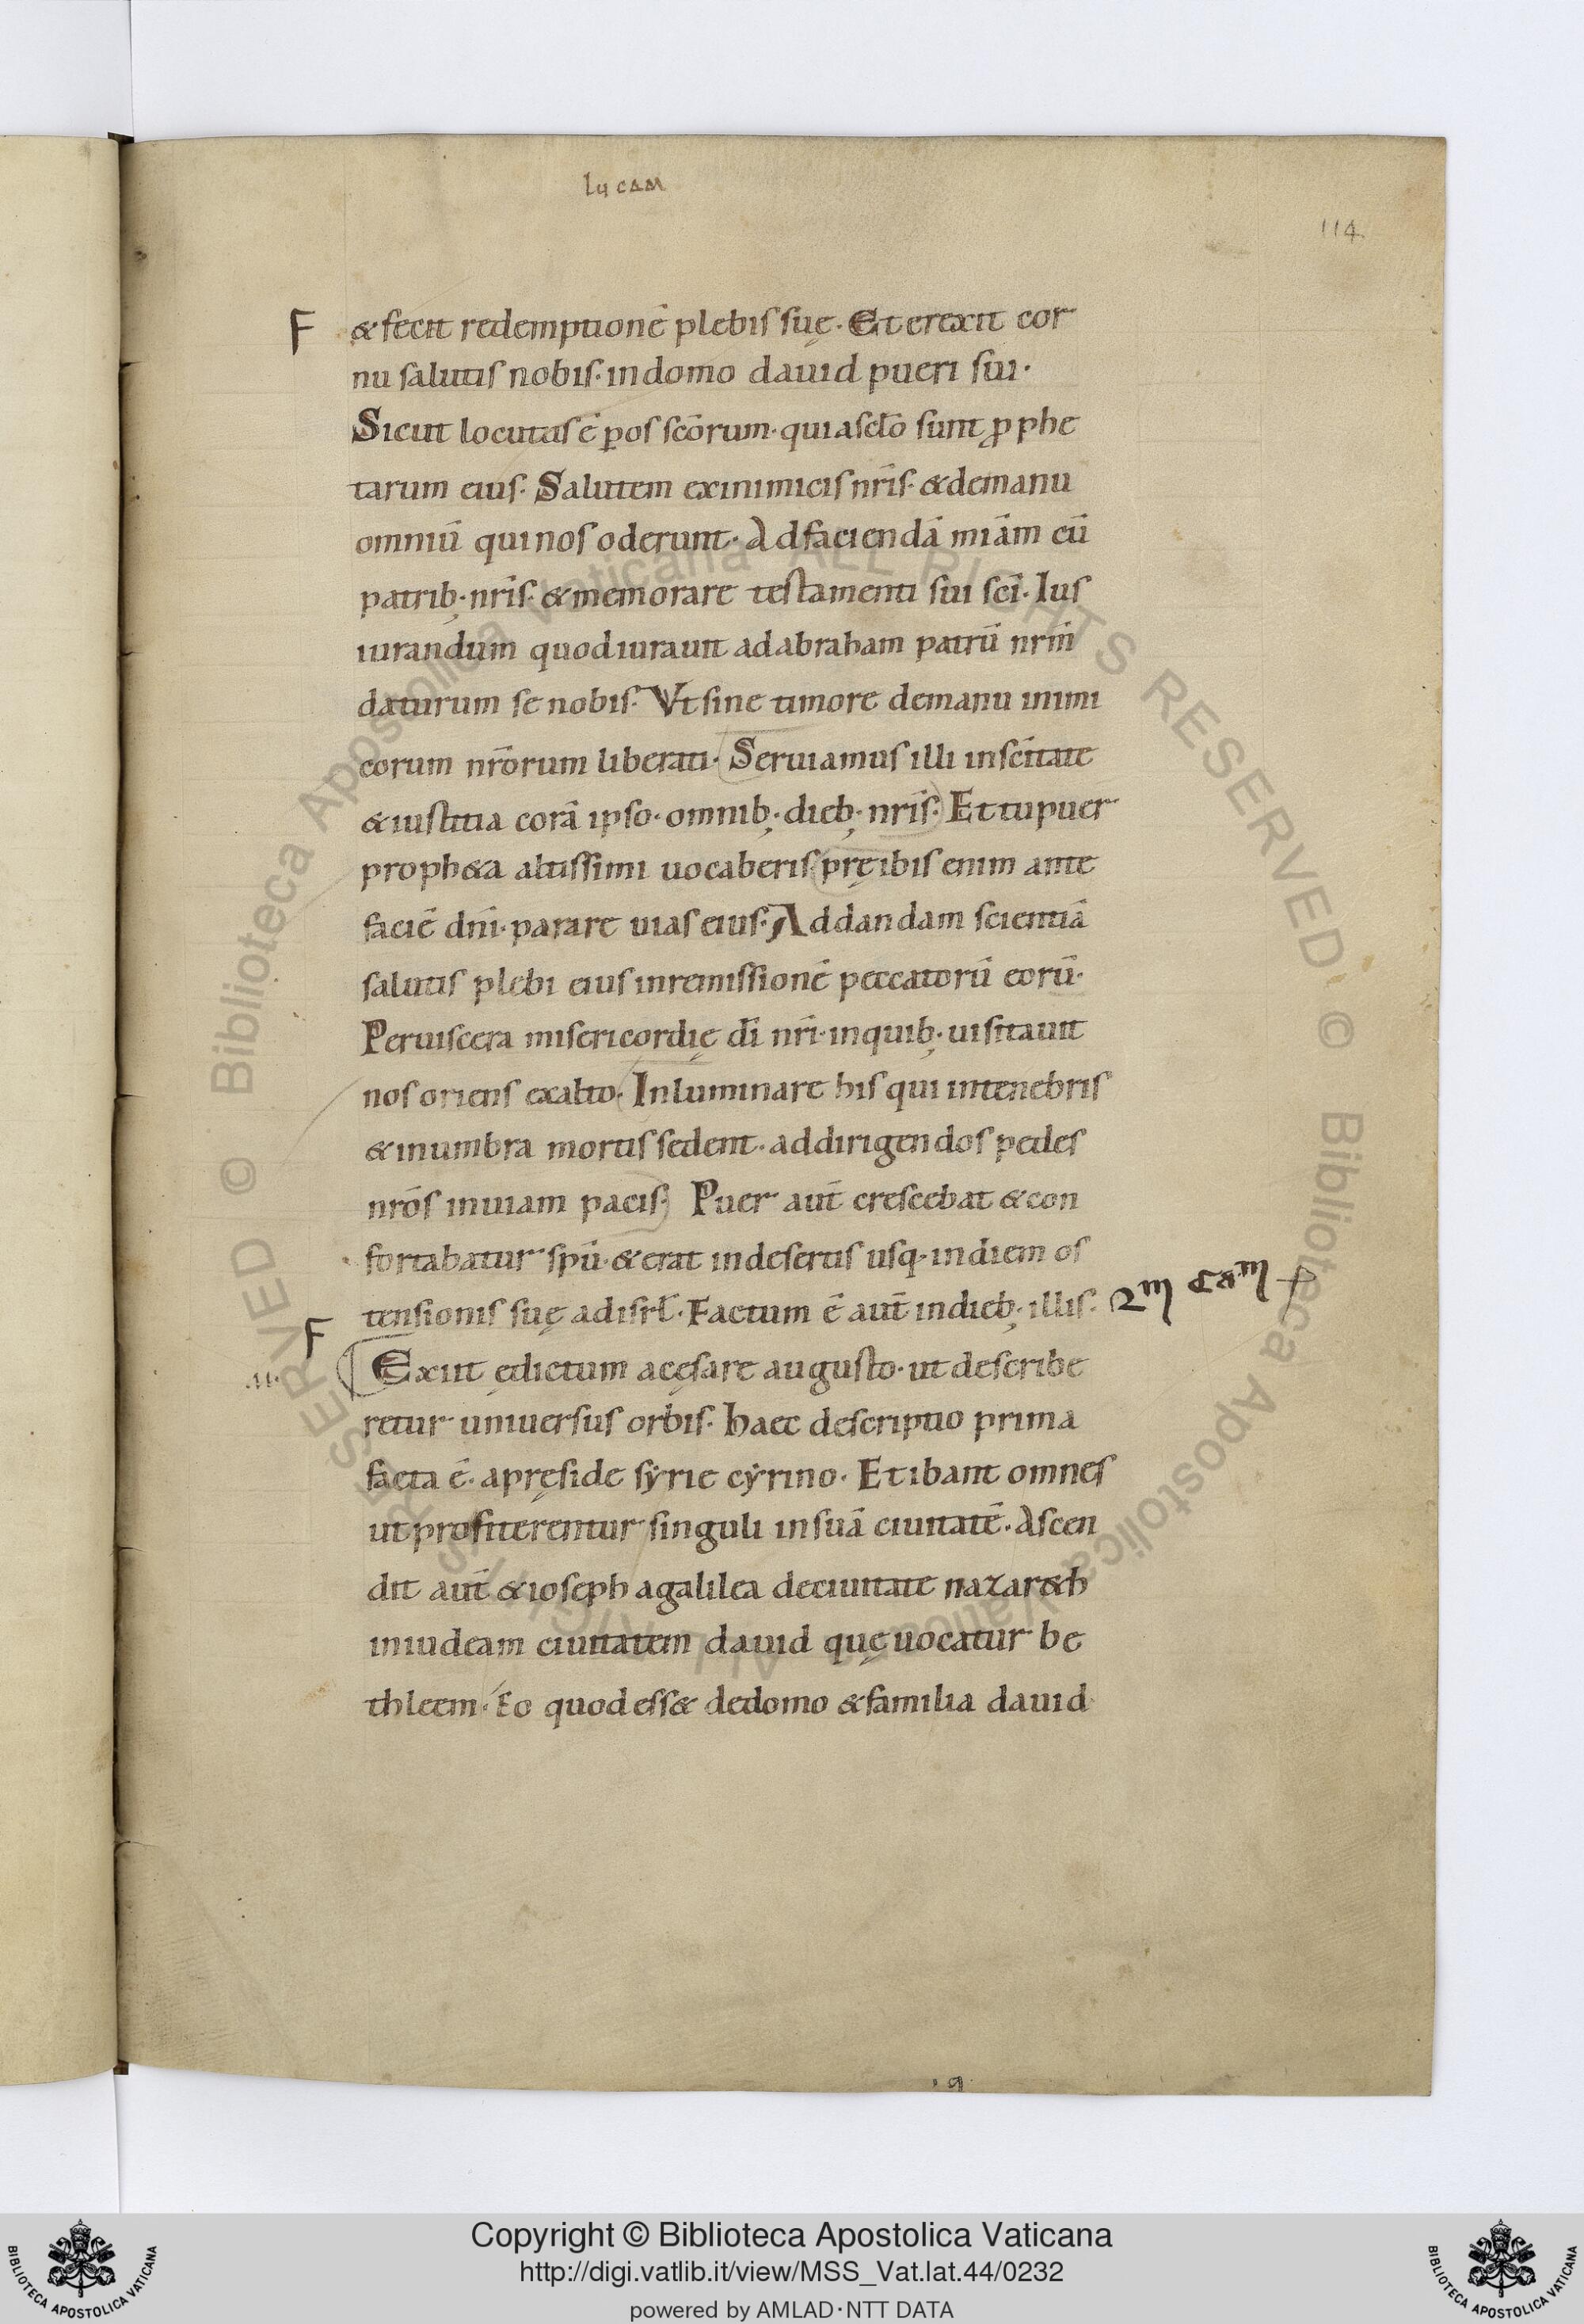 lucam
114
F
& fecit redemptionē plebis suę. Et erexit cor
nu salutis nobis. in domo dauid pueri sui.
Sicut locutus ē p̱ os scōrum. qui a sc̄lo sunt ꝓphe
tarum eius. Salutem ex inimicis nr̄is. & de manu
omniū qui nos oderunt. Ad faciendā miām cū
patrib; nr̄is. & memorare testamenti sui sc̄i. Ius
iurandum quod iurauit ad abraham patrū nrm̄
daturum se nobis. Vt sine timore de manu inimi
corum nr̄orum liberati. Seruiamus illi in sc̄itate
& iustitia corā ipso. omnib; dieb; nr̄is. Et tu puer
proph&a altissimi uocaberis. pręibis enim ante
faciē dn̄i. parare uias eius. Ad dandam scientiā
salutis plebi eius in remissionē peccatorū eorū.
Per uiscera misericordię dī nr̄i. in quib; uisitauit
nos oriens ex alto. Inluminare his qui in tenebris
& in umbra mortis sedent. ad dirigendos pedes
nrōs in uiam pacis. Puer aut̄ crescebat & con
fortabatur spū. & erat in desertis usq. in diem os
tensionis suę ad isrl̄. Factum ē aut̄ in dieb; illis.
2m ca.m
F
.II.
Exiit ędictum a cęsare augusto. ut describe
retur uniuersus orbis. haec descriptio prima
facta ē. a pręside sẏrie cẏrino. Et ibant omnes
ut profiterentur singuli in suā ciuitatē. Ascen
dit aut̄ & ioseph a galilea de ciuitate nazar&h
in iudeam ciuitatem dauid quę uocatur be
thleem. Eo quod ess& de domo & familia dauid
Copyright © Biblioteca Apostolica Vaticana
http://digi.vatlib.it/view/MSS_Vat.lat.44/0232
powered by AMLAD·NTT DATA
BIBLIOTECA APOSTOLICA VATICANA
BIBLIOTECA APOSTOLICA VATICANA
© Biblioteca Apostolica Vaticana ALL RIGHTS RESERVED © Biblioteca Apostolica Vaticana ALL RIGHTS RESERVED